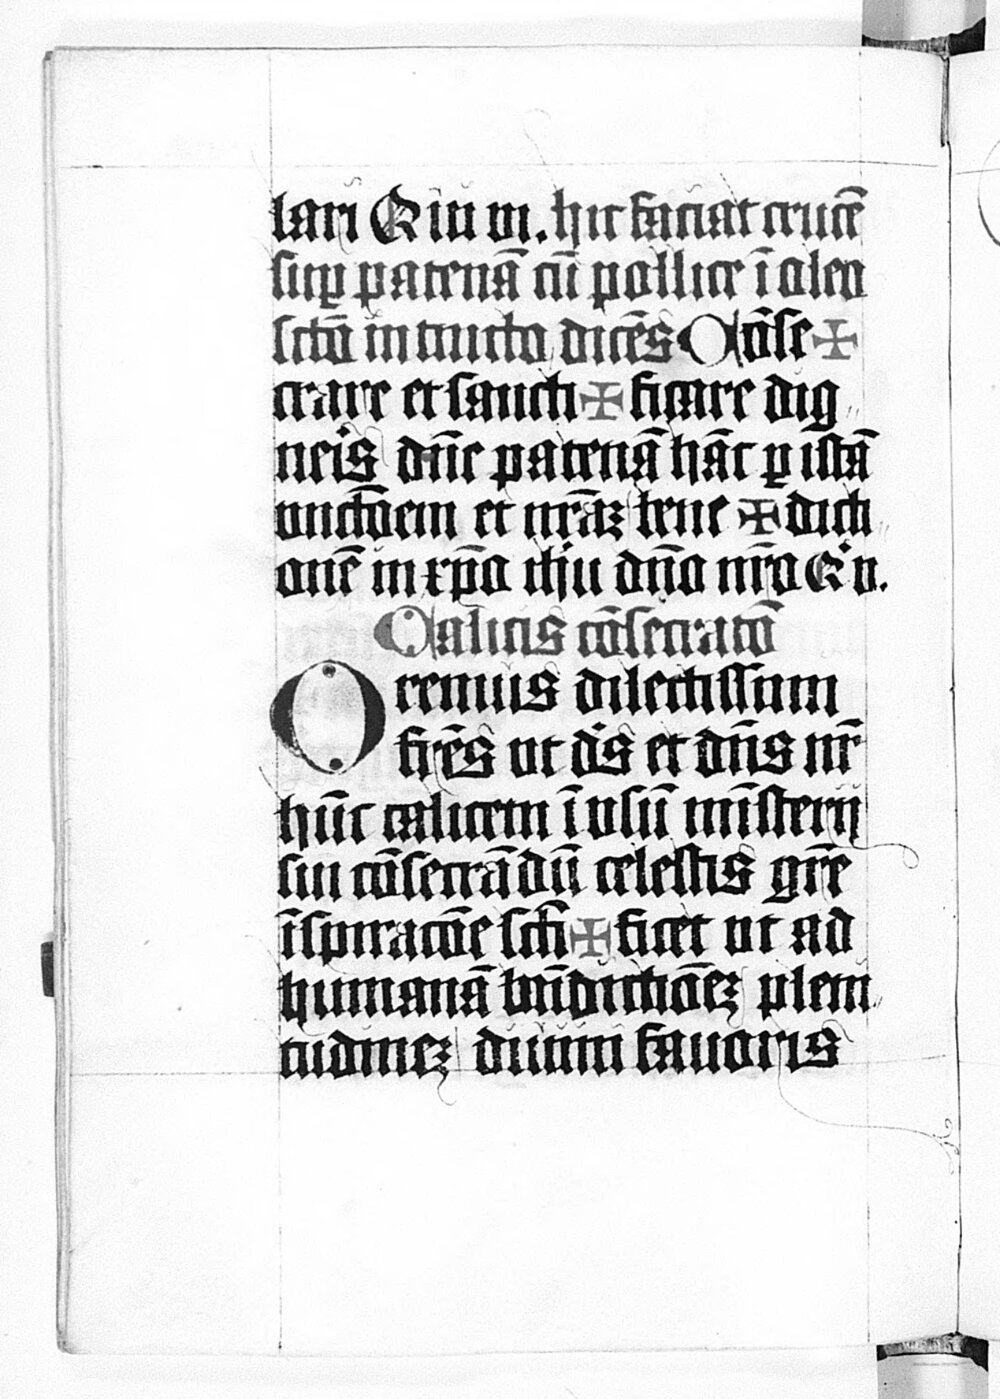 lari Q̄ iu vin. hic faciat crucē
sup̱ patenā cū pollice ī oleo
sctō intincto dicēs Cōse ✠
crare et sancti ✠ ficare dig
neris dn̄e patenā hāc p̱ istā
vnctōem et nr̄aꝫ bene ✠ dicti
onē in xp̄o ihū dn̄o nr̄o Qͥ v.
Calicis cōsecratō
Oremus dilectissimi
fr̄es vt dēs et dn̄s nr̄
hūc calicem ī vsū mīsterij
sui cōsecrādū celestis gr̄e
īspiracōe scti ✠ ficet vt ad
humanā bn̄dictiōeꝫ pleni
tudineꝫ diuini fauoris